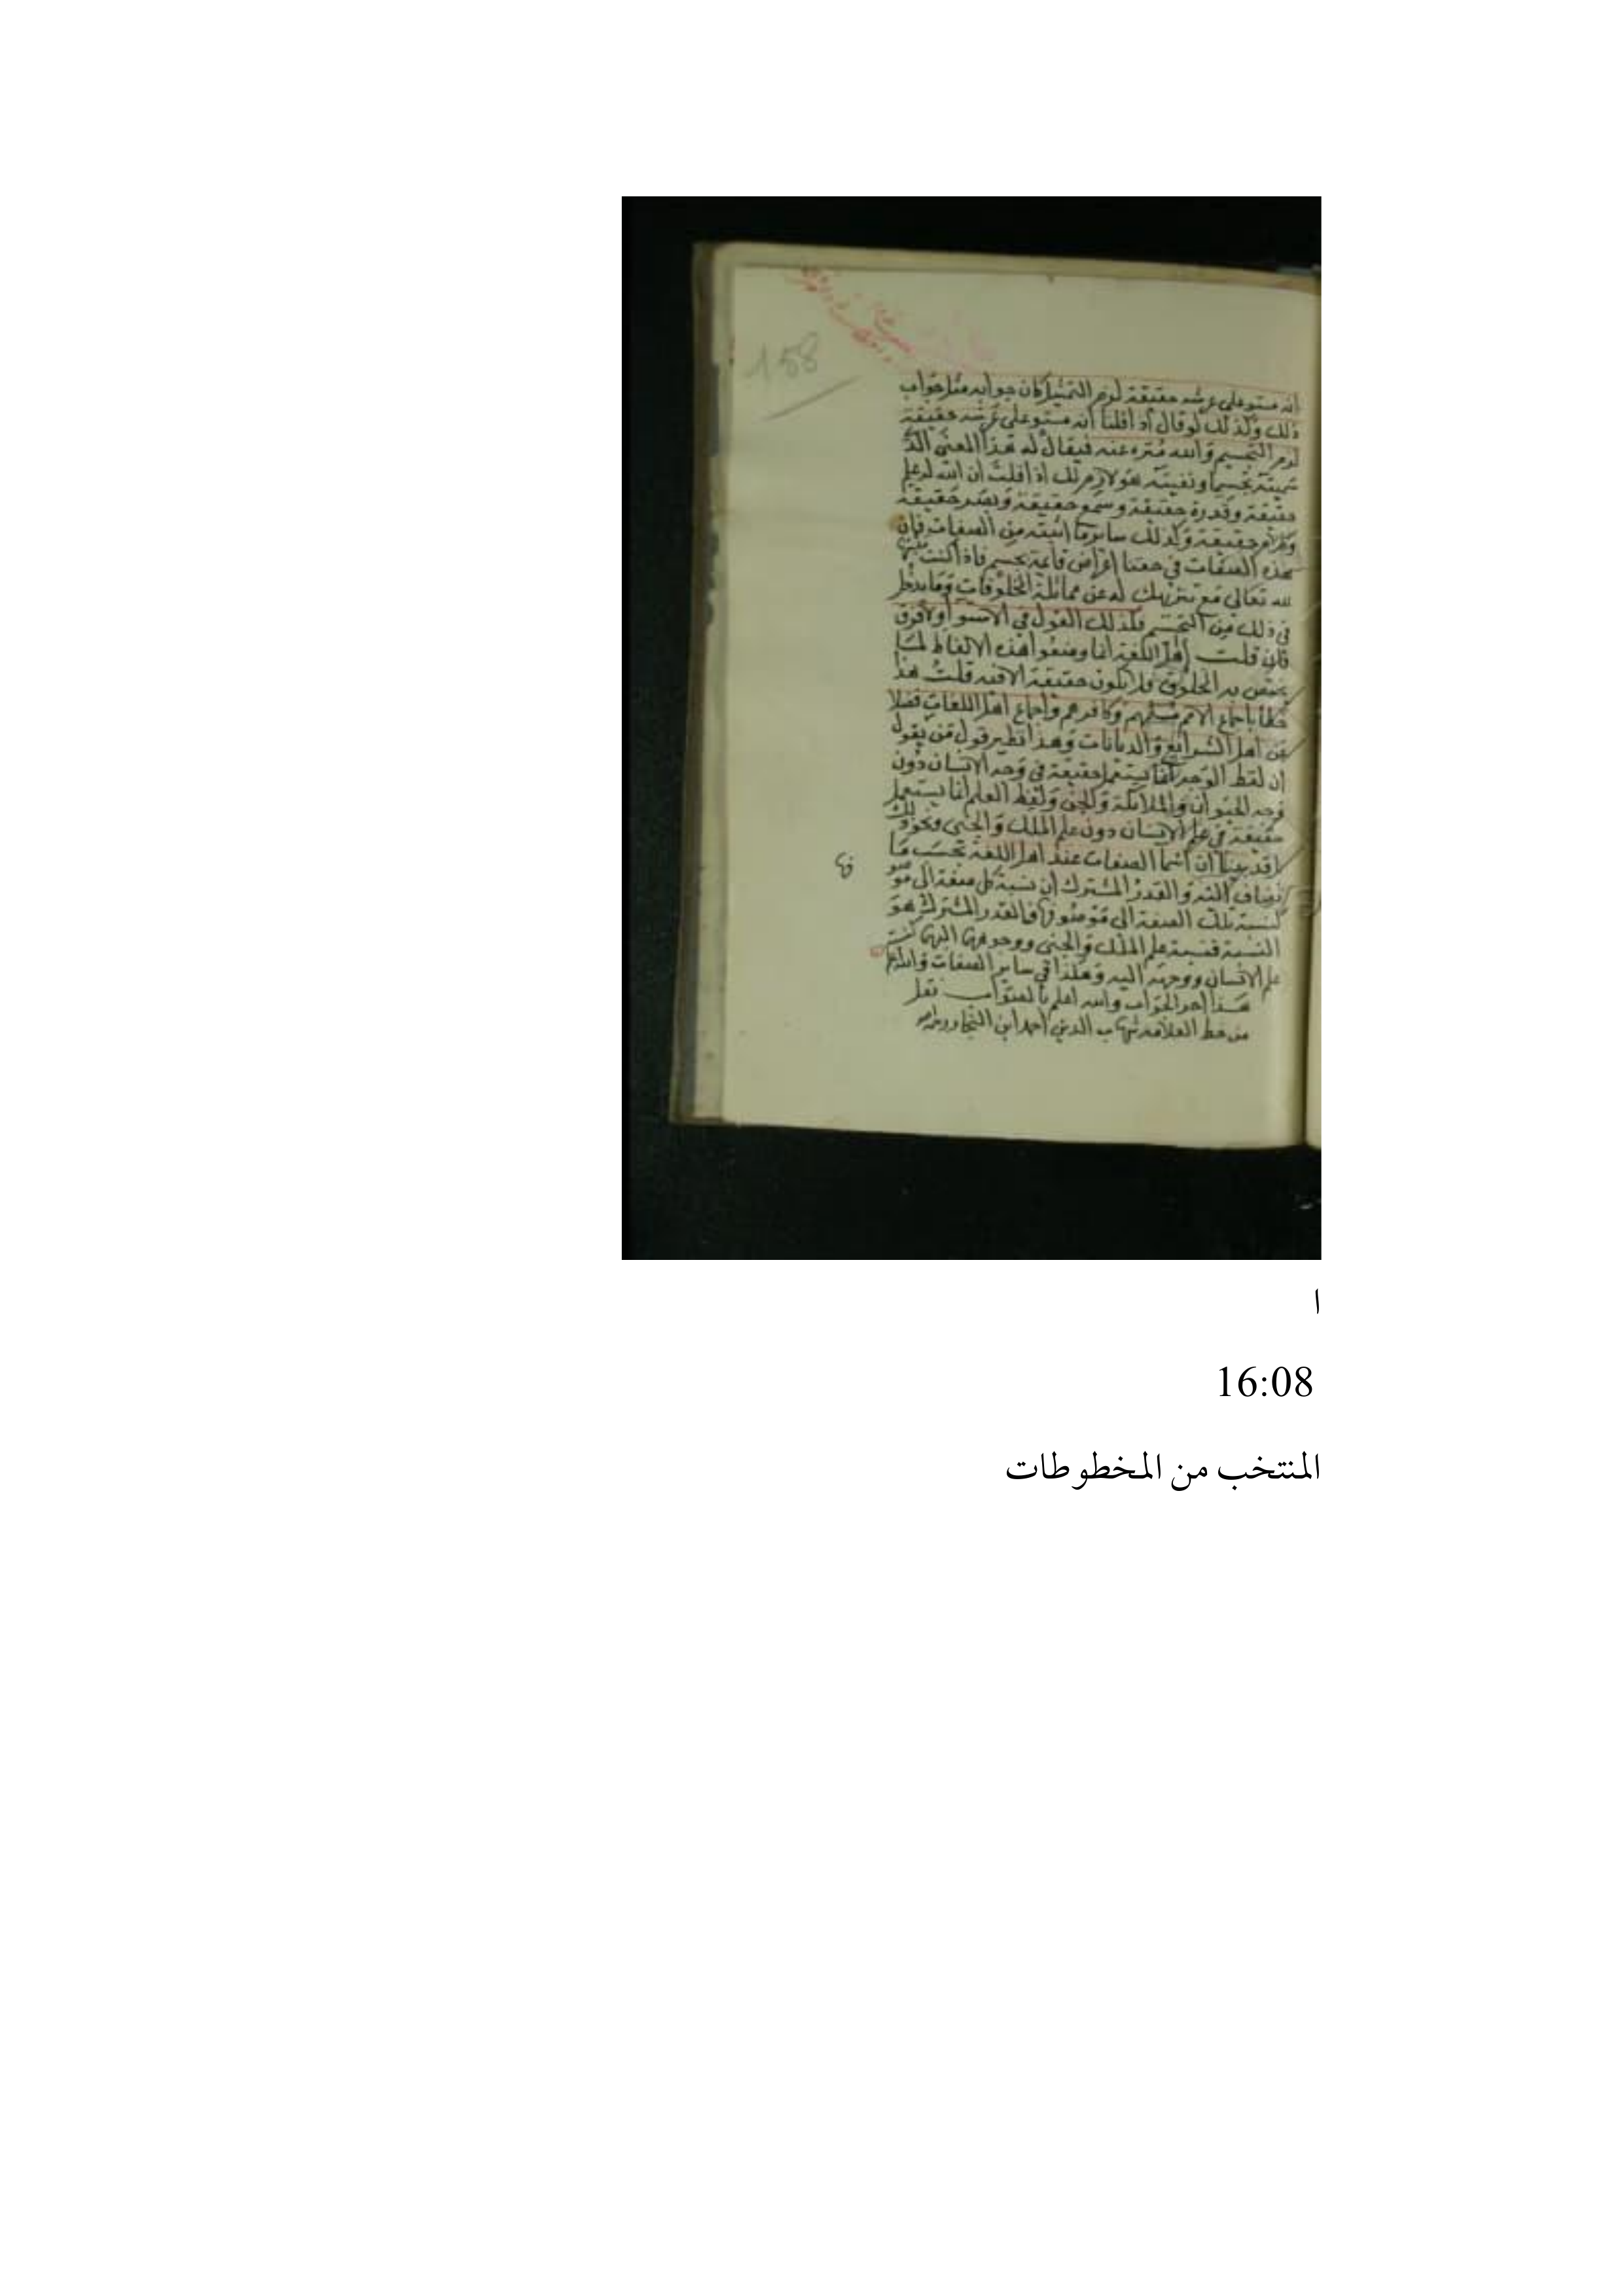 158
انه مستو على عرشه حقيقة لزم التمثيل كان جوابه مثل جواب
ذلك وكذلك لو قال اذا قلنا انه مستو على عرشه حقيقة
لزم التجسيم والله منزه عنه فيقال له هذا المعنى الذي
سميته تجسيما ونفيته هو لازم لك اذا قلت ان الله له علم
حقيقة وقدرة حقيقة وسمع حقيقة وبصر حقيقة
وكلام حقيقة وكذلك ساير ما اثبته من الصفات فان
هذه الصفات في حقنا اعراض قائمة بجسم فاذا كنت تثبتها
لله تعالى مع تنزيهك له عن مماثلة المخلوقات وما يدخل
في ذلك من التجسيم فكذلك القول في الاستوا ولا فرق
فان قلت اهل اللغة انما وضعوا هذه الالفاظ لما
يختص به المخلوق فلا يكون حقيقة الا فيه قلت هذا
خطا باجماع الامم مسلمهم وكافرهم واجماع اهل اللغات فضلا
عن اهل الشرايع والديانات وهذا نظير قول من يقول
ان لفظ الوجه انما يستعمل حقيقة في وجه الانسان دون
وجه الحيوان والملائكة والجن ولفظ العلم انما يستعمل
حقيقة في علم الانسان دون علم الملك والجني ونحو ذلك
قد بينا ان اسما الصفات عند اهل اللغة بحسب ما
تضاف اليه والقدر المشترك ان نسبة كل صفة الى موصو
كنسبة تلك الصفة الى موصوفها فالقدر المشترك هو
النسبة فنسبة علم الملك والجني ووجوهها اليها كنسبة
علم الانسان ووجهه اليه وهكذا في ساير الصفات والله اعلم
هذا اخر الجواب والله اعلم بالصواب نقل
من خط العلامة شهاب الدين احمد ابن النجار
ا
16:08
المنتخب من المخطوطات